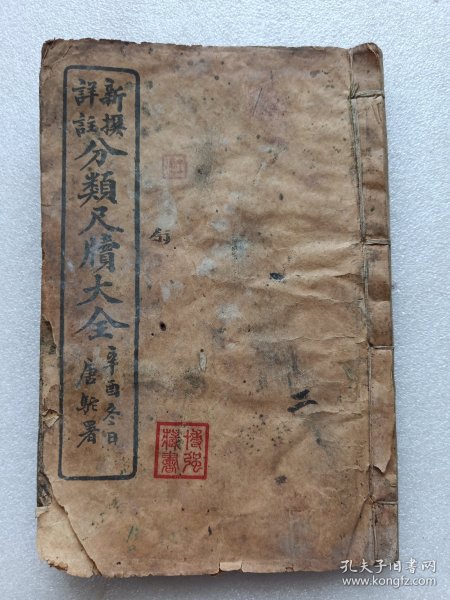 新撰
詳註
分類尺牘大全
辛酉冬日
唐駝署
二
孔夫子旧书网
www.kongfz.com